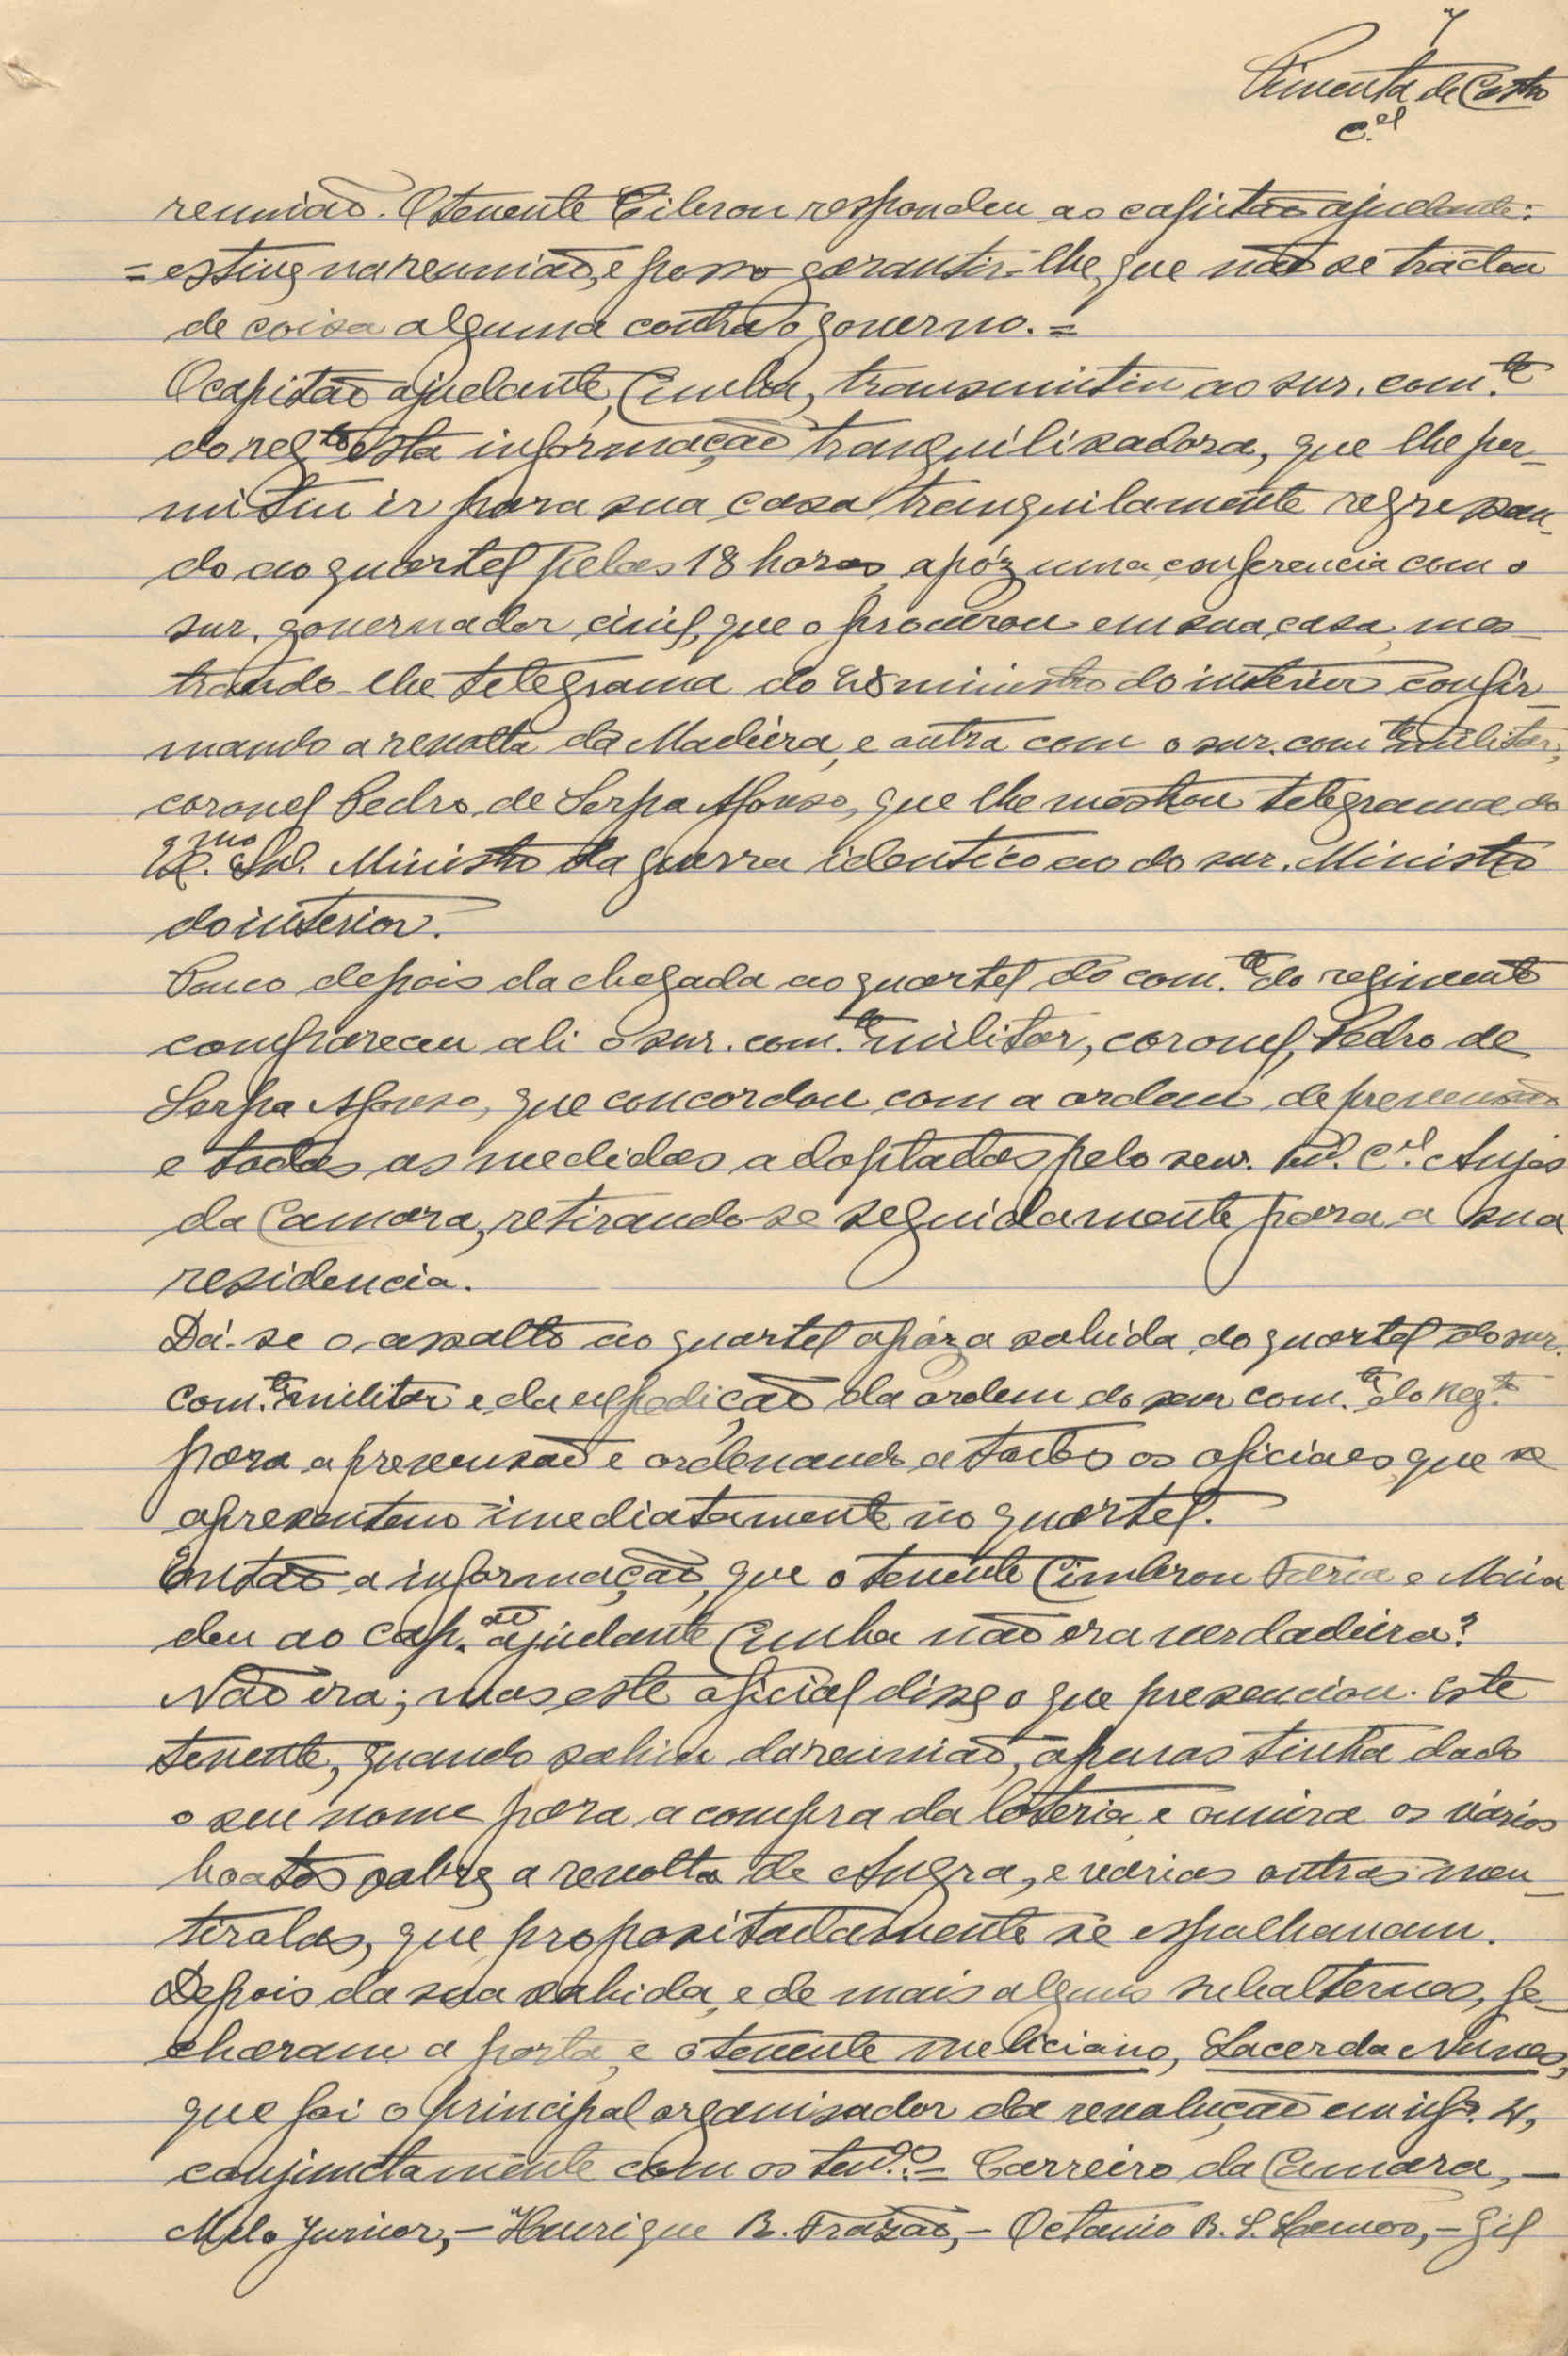 4
Pimenta de Castro
C.el
reunião. O tenente Cibrou respondeu ao capitão ajudante:
= estive na reunião, e posso garantir-lhe, que não se tractou
de coisa alguma contra o governo. =
O capitão ajudante, Cunha, transmitiu ao snr. com.te
do reg.to esta informação tranquilisadora, que lhe per-
mitiu ir para sua casa tranquilamente regressan-
do ao quartel pelas 18 horas, apóz uma conferencia com o
snr. governador civil, que o procurou em sua casa, mos-
trando-lhe telegrama do ministro do interior confir-
mando a revolta da Madeira, e outra com o snr. com.te militar,
coronel Pedro de Serpa Afonso, que lhe mostrou telegrama do
Ex.mo Snr. Ministro da guerra identico ao do snr. Ministro
do interior.
Pouco depois da chegada ao quartel do com.te do regimento
compareceu ali o snr. com.te militar, coronel, Pedro de
Serpa Afonso, que concordou com a ordem de prevensão
e todas as medidas adoptadas pelo senr. ten. C.el Anjos
da Camara, retirando-se seguidamente para a sua
residencia.
Dá-se o assalto ao quartel apóz a sahida do quartel do snr.
com.te militar e da expedição da ordem do snr com.te do Reg.to
para a prevensão e ordenando a todos os oficiaes, que se
apresentem imediatamente no quartel.
Então a informação, que o tenente Cimbron Faria e Maia
deu ao cap.ão ajudante Cunha não era verdadeira?
Não era; mas este oficial disse o que presenciou. Este
tenente, quando sahiu da reunião, apenas tinha dado
o seu nome para a compra da loteria, e ouvira os vários
boatos sobre a revolta de Angra, e várias outras men-
tirolas, que propositadamente se espalhavam.
Depois da sua sahida, e de mais alguns subalternos, fe-
charam a porta, e o tenente meliciano, Lacerda Nunes,
que foi o principal organisador da revolução em inf.a 4,
conjunctamente com os ten.es = Carreiro da Camara, -
Melo Junior, - Henrique R. Frazão, - Octavio R. S. Lemos, - Gil